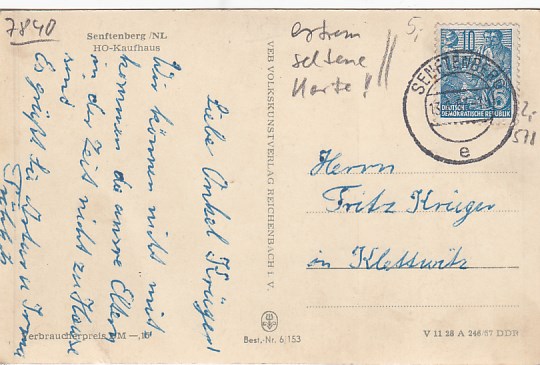 7840
Senftenberg /NL
HO-Kaufhaus
extrem
seltene
Karte!
5,-
10
SENFTENBERG
e
DEUTSCHE
DEMOKRATISCHE REPUBLIK
2,-
578
Liebe Onkel Krüger!
Wir können nicht mit
kommen da unsre Eltern
in der Zeit nicht zu Hause
sind
Es grüßt Sie
VEB VOLKSKUNSTVERLAG REICHENBACH I. V.
Herrn
Fritz Krüger
in Klettwitz
erbraucherpreis DM —,
Best.-Nr. 6/153
V 11 28 A 246/57 DDR